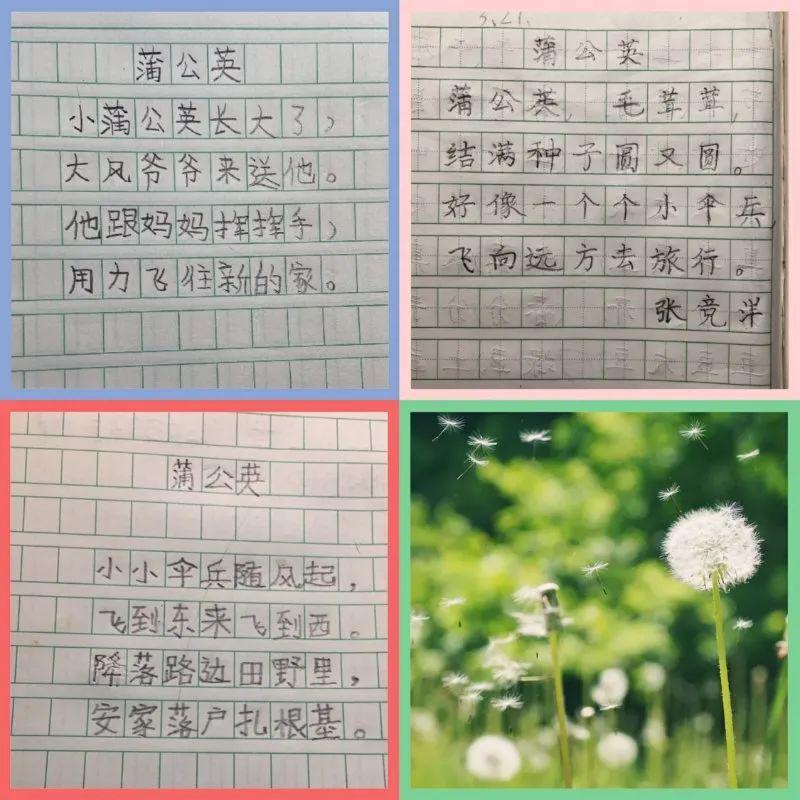 蒲公英
小蒲公英长大了,
大风爷爷来送他。
他跟妈妈挥挥手,
用力飞往新的家。
蒲公英
蒲公英,毛茸茸,
结满种子圆又圆。
好像一个个小伞兵,
飞向远方去旅行。
张竞洋
蒲公英
小小伞兵随风起,
飞到东来飞到西。
降落路边田野里,
安家落户扎根基。